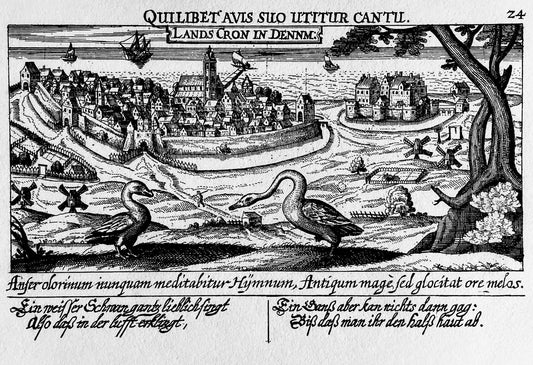 QUILIBET AVIS SUO UTITUR CANTU.
24
LANDS CRON IN DENNM:
Anser olorinum nunquam meditabitur Hÿmnum, Antiqum magè sed glocitat ore melos.
Ein weisser Schwan gantz lieblich singt
Also daß in der lufft erklingt,
Ein Ganß aber kan nichts dann gag:
Biß daß man ihr den halß haut ab.